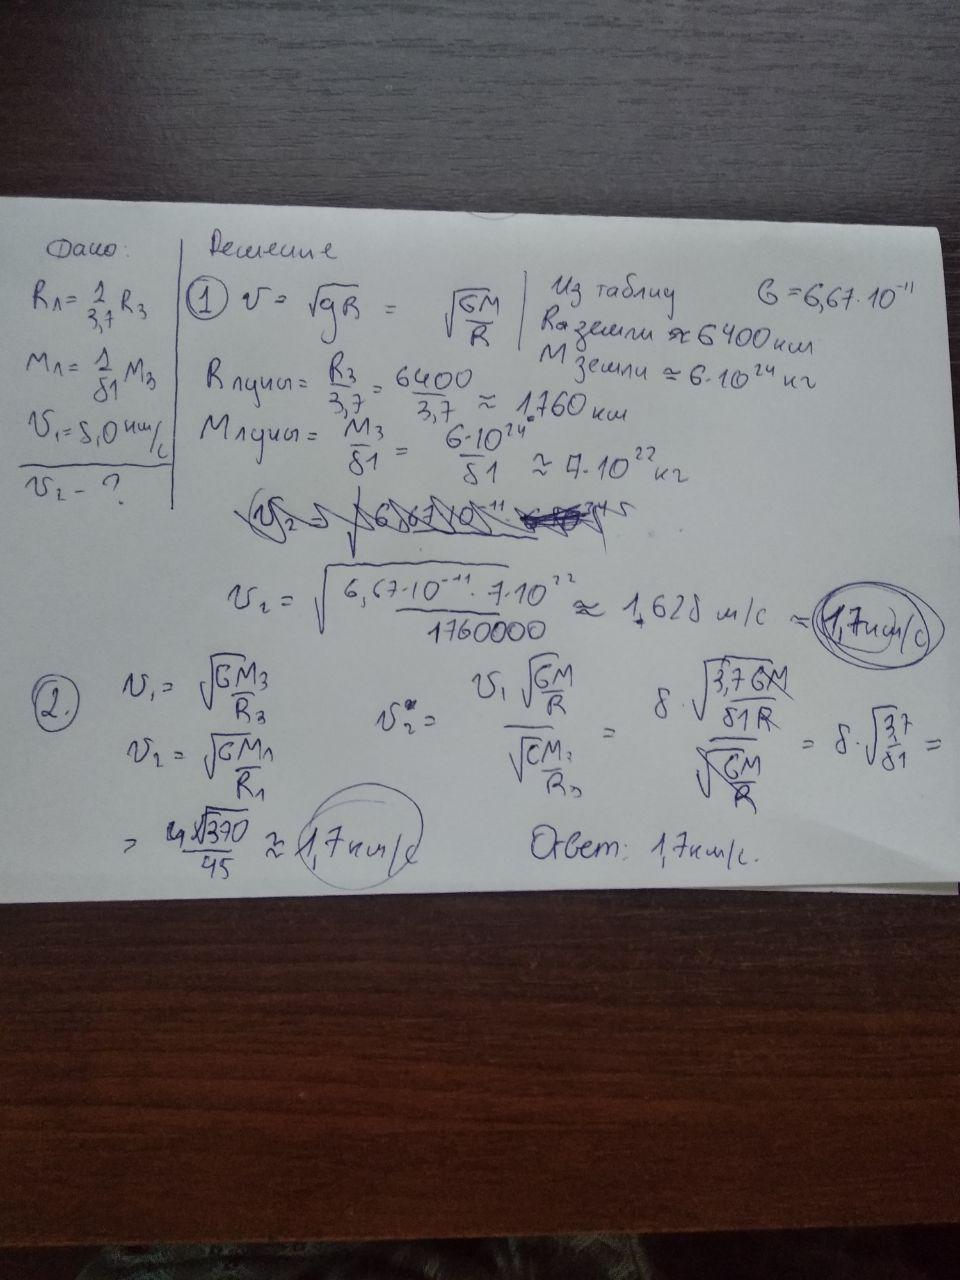 Дано:
Rл = 1/3,7 Rз
Mл = 1/81 Mз
v₁ = 8,0 км/с
v₂ - ?
Решение
① v = √gR = √(GM/R)
Из таблиц G = 6,67·10⁻¹¹
R земли ≈ 6400 км
M земли ≈ 6·10²⁴ кг
R луны = Rз/3,7 = 6400/3,7 ≈ 1760 км
M луны = Mз/81 = 6·10²⁴/81 ≈ 7·10²² кг
v₂ = √(6,67·10⁻¹¹·7·10²²/1760000) ≈ 1,628 м/с ≈ 1,7 км/с
②. v₁ = √(GMз/Rз)
v₂ = √(GMл/Rл)
v₂ = v₁√(GM/R)/√(GMз/Rз) = 8·√(3,7GM/81R)/√(GM/R) = 8·√(3,7/81) =
= 4√370/45 ≈ 1,7 км/с
Ответ: 1,7 км/с.